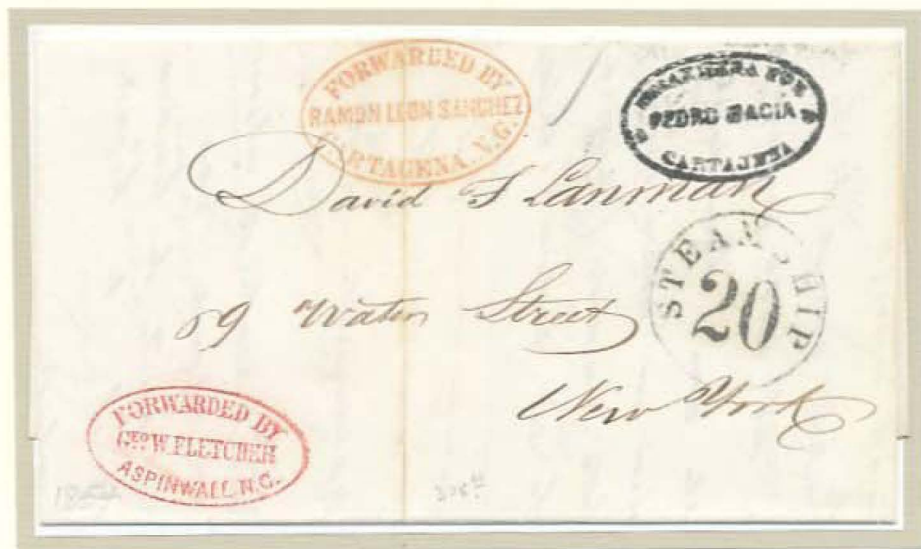 FORWARDED BY
RAMON LEON SANCHEZ
CARTAGENA, N.G.
POR
PEDRO MACIA
CARTAJENA
David F Lanman
69 Water Street
New York
STEAMSHIP
20
FORWARDED BY
Geo W. FLETCHER
ASPINWALL. N.G.